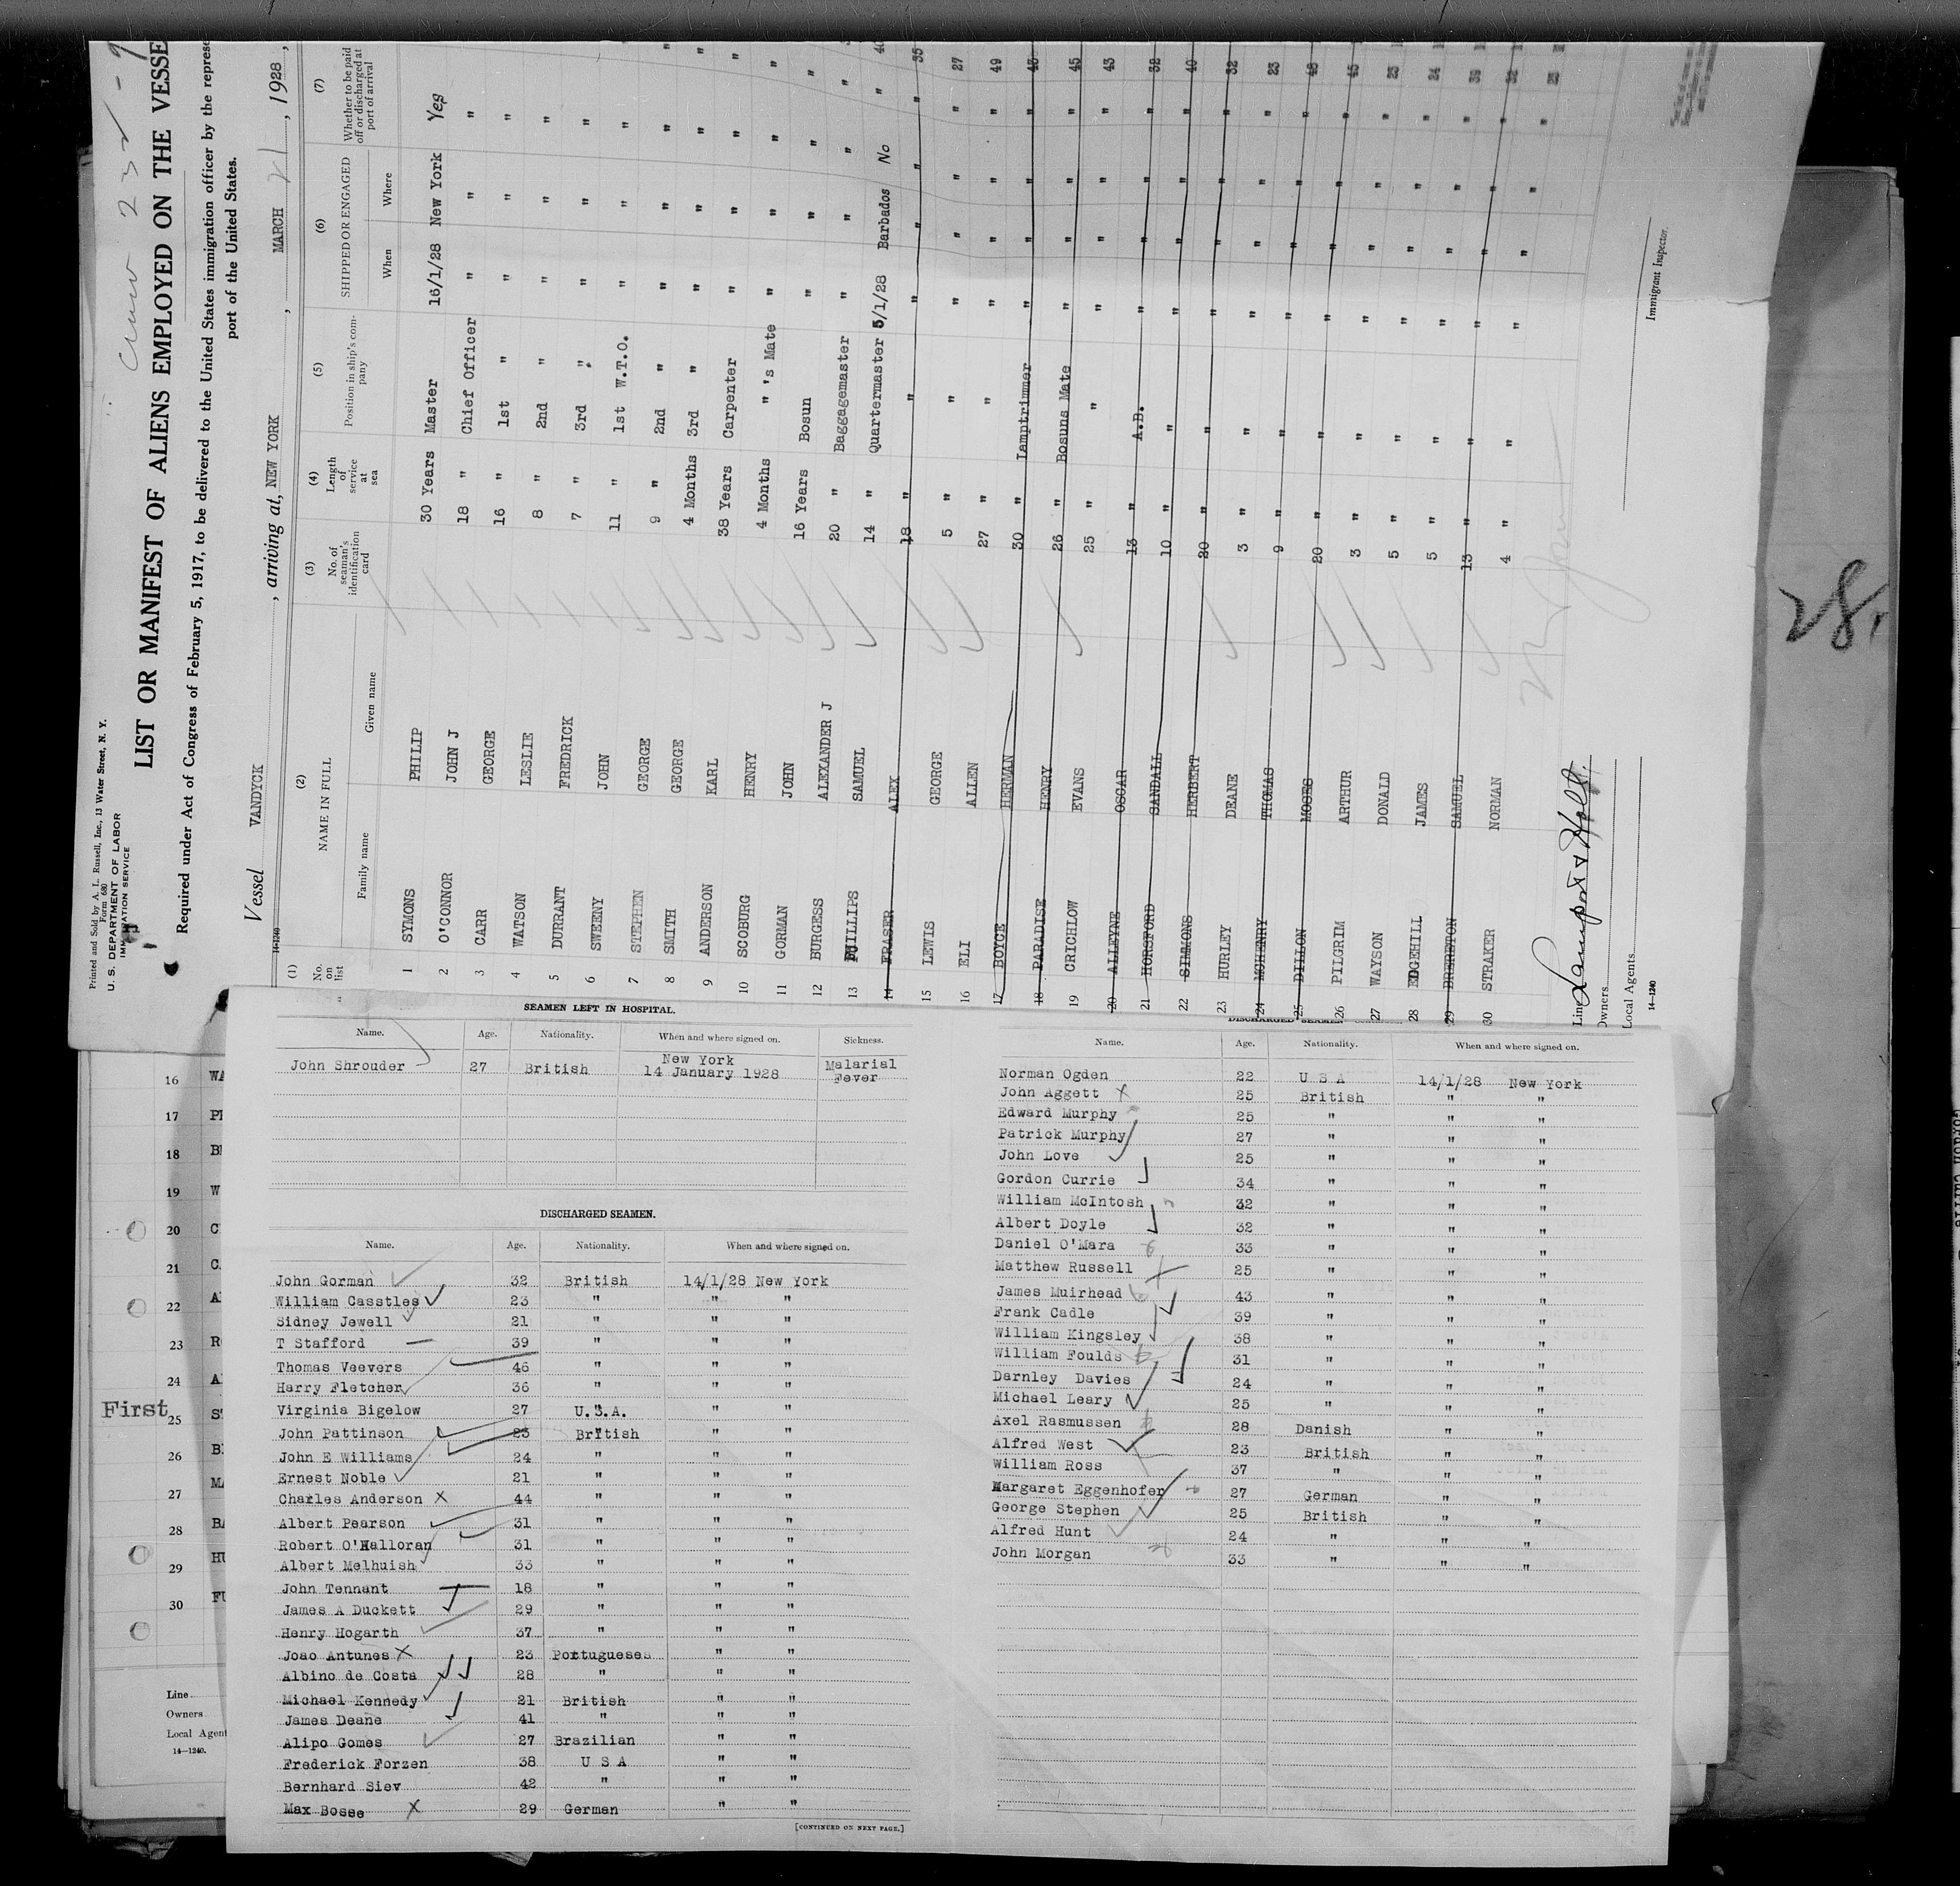 Printed and Sold by A. L. Russell, Inc., 13 Water Street, N. Y.
Form 680
U. S. DEPARTMENT OF LABOR
IMMIGRATION SERVICE
LIST OR MANIFEST OF ALIENS EMPLOYED ON THE VESSE
Required under Act of Congress of February 5, 1917, to be delivered to the United States immigration officer by the represe
port of the United States.
Vessel VANDYCK , arriving at, NEW YORK , MARCH 21 , 1928,
14-1240
(1) (2) (3) (4) (5) (6) (7)
No. on list NAME IN FULL No. of seaman's identification card Length of service at sea Position in ship's company SHIPPED OR ENGAGED Whether to be paid off or discharged at port of arrival
Family name Given name When Where
1 SYMONS PHILIP 30 Years Master 16/1/28 New York Yes
2 O'CONNOR JOHN J 18 " Chief Officer " " "
3 CARR GEORGE 16 " 1st " " " "
4 WATSON LESLIE 8 " 2nd " " " "
5 DURRANT FREDRICK 7 " 3rd " " " "
6 SWEENY JOHN 11 " 1st W.T.O. " " "
7 STEPHEN GEORGE 9 " 2nd " " " "
8 SMITH GEORGE 4 Months 3rd " " " "
9 ANDERSON KARL 38 Years Carpenter " " "
10 SCOBURG HENRY 4 Months " 's Mate " " "
11 GORMAN JOHN 16 Years Bosun " " "
12 BURGESS ALEXANDER J 20 " Baggagemaster " " "
13 PHILLIPS SAMUEL 14 " Quartermaster 5/1/28 Barbados No 40
14 FRASER ALEX 18 " " " " " 35
15 LEWIS GEORGE 5 " " " " " 27
16 ELI ALLEN 27 " " " " " 49
17 BOYCE HERMAN 30 " Lamptrimmer " " "
18 PARADISE HENRY 26 " Bosuns Mate " " " 45
19 CRICHLOW EVANS 25 " " " " " 43
20 ALLEYNE OSCAR 13 " A.B. " " " 32
21 HORSFORD SANDALL 10 " " " " " 40
22 SIMMONS HERBERT 20 " " " " " 32
23 HURLEY DEANE 3 " " " " " 23
24 MCHENRY THOMAS 9 " " " " "
25 DILLON MOSES 20 " " " " "
26 PILGRIM ARTHUR 3 " " " " "
27 WAYSON DONALD 5 " " " " "
28 EDGEHILL JAMES 5 " " " " "
29 BRERETON SAMUEL 13 " " " " "
30 STRAKER NORMAN 4 " " " " "
Line Lamport & Holt.
Owners
Local Agents
14-1240
Immigrant Inspector.
28
16
17
18
19
20
21
22
23
24
First
25
26
27
28
29
30
Line
Owners
Local Agent
14-1240.
SEAMEN LEFT IN HOSPITAL.
Name. Age. Nationality. When and where signed on. Sickness.
John Shrouder 27 British New York 14 January 1928 Malarial Fever
DISCHARGED SEAMEN.
Name. Age. Nationality. When and where signed on.
John Gorman 32 British 14/1/28 New York
William Casstles 23 " " "
Sidney Jewell 21 " " "
T Stafford 39 " " "
Thomas Veevers 46 " " "
Harry Fletcher 36 " " "
Virginia Bigelow 27 U.S.A. " "
John Pattinson 23 British " "
John E Williams 24 " " "
Ernest Noble 21 " " "
Charles Anderson X 44 " " "
Albert Pearson 31 " " "
Robert O'Halloran 31 " " "
Albert Melhuish 33 " " "
John Tennant 18 " " "
James A Duckett 29 " " "
Henry Hogarth 37 " " "
Joao Antunes X 23 Portugueses " "
Albino de Costa 28 " " "
Michael Kennedy 21 British " "
James Deane 41 " " "
Alipo Gomes 27 Brazilian " "
Frederick Forzen 38 U S A " "
Bernhard Siev 42 " " "
Max Bosse X 29 German " "
[CONTINUED ON NEXT PAGE.]
DISCHARGED SEAMEN
Name. Age. Nationality. When and where signed on.
Norman Ogden 22 U S A 14/1/28 New York
John Aggett X 25 British " "
Edward Murphy 25 " " "
Patrick Murphy 27 " " "
John Love 25 " " "
Gordon Currie 34 " " "
William McIntosh 32 " " "
Albert Doyle 32 " " "
Daniel O'Mara 33 " " "
Matthew Russell 25 " " "
James Muirhead 43 " " "
Frank Cadle 39 " " "
William Kingsley 38 " " "
William Foulds 31 " " "
Darnley Davies 24 " " "
Michael Leary 25 " " "
Axel Rasmussen 28 Danish " "
Alfred West 23 British " "
William Ross 37 " " "
Margaret Eggenhofer 27 German " "
George Stephen 25 British " "
Alfred Hunt 24 " " "
John Morgan 33 " " "